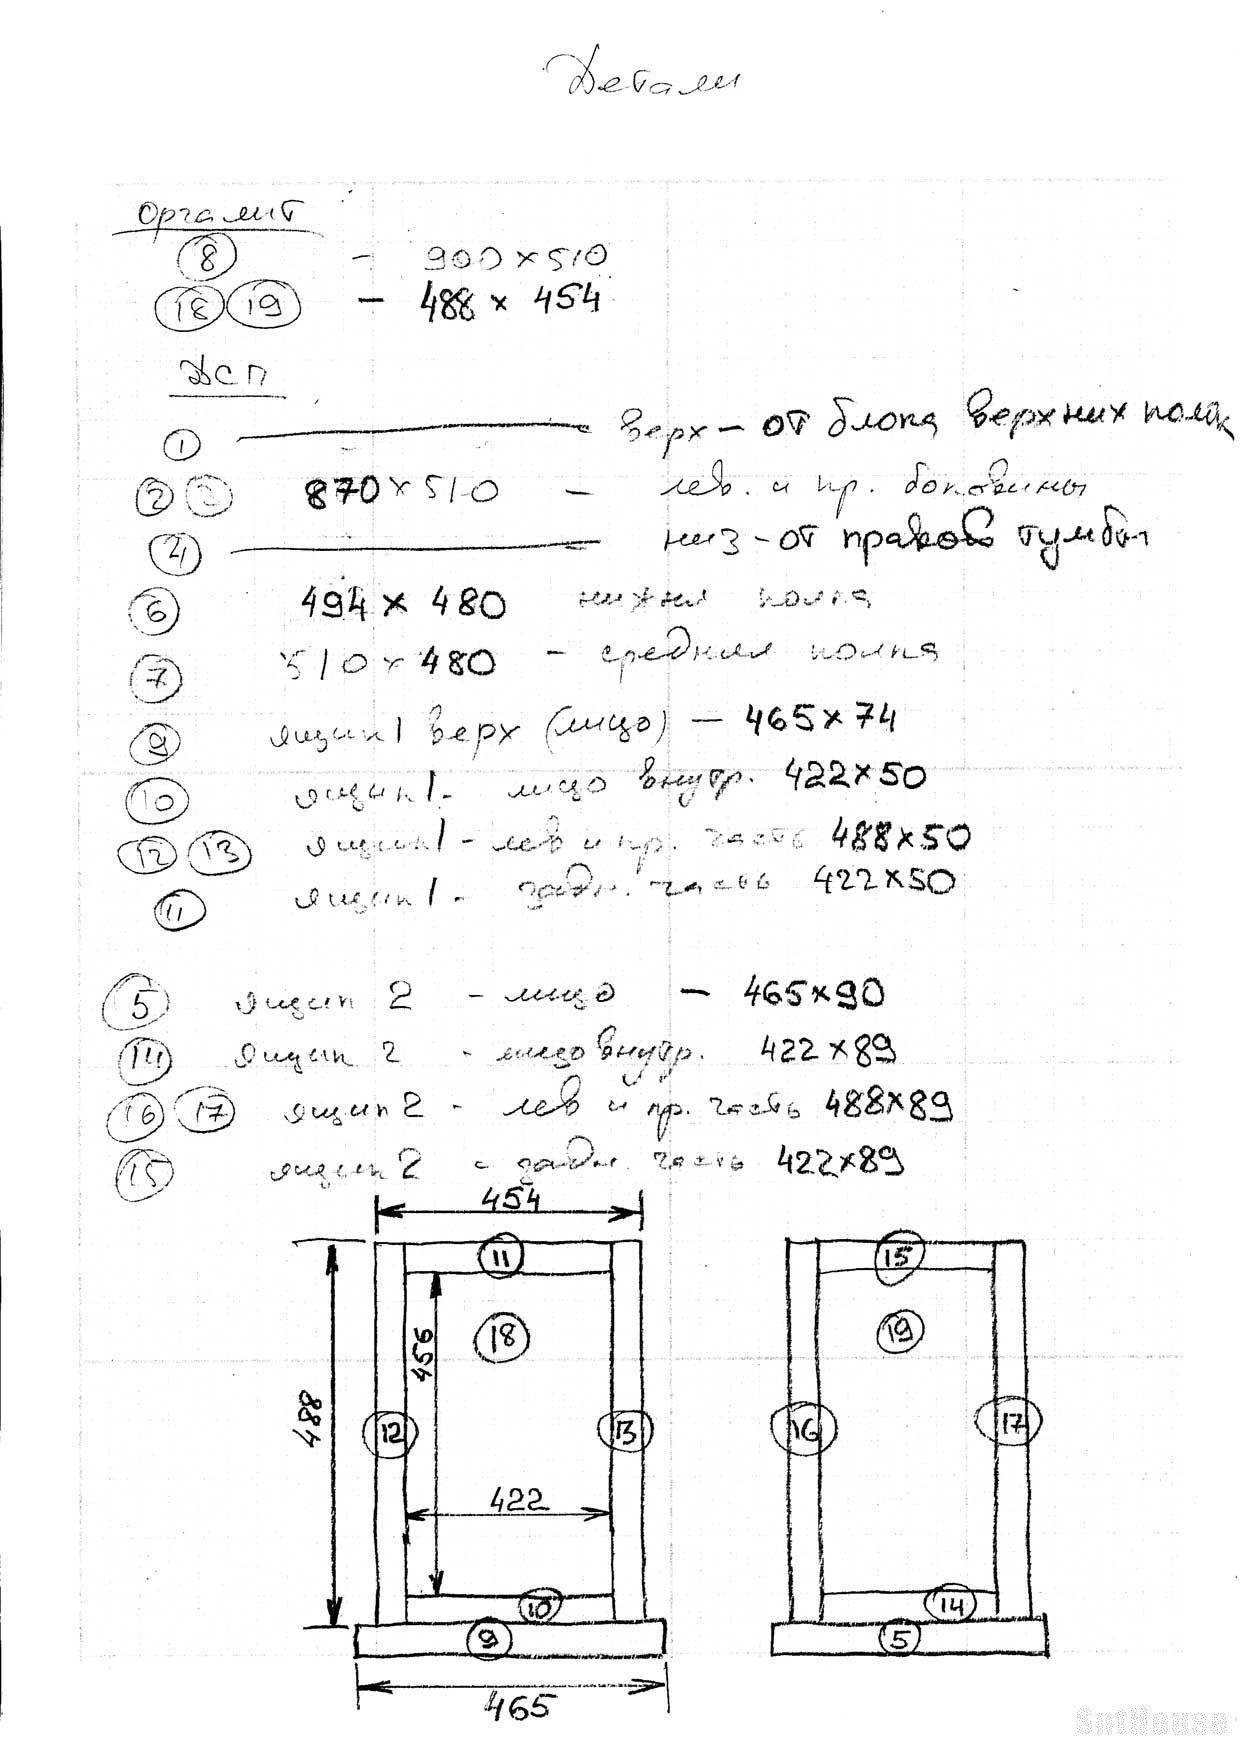 Детали
Оргалит
8 - 900×510
18 19 - 488 × 454
ДСП
1 верх - от блока верхних полок
2 3 870×510 - лев. и пр. боковины
4 низ - от правой тумбы
6 494 × 480 нижняя полка
7 510 × 480 - средняя полка
9 ящик 1 верх (лицо) - 465×74
10 ящик 1 - лицо внутр. 422×50
12 13 ящик 1 - лев и пр. часть 488×50
11 ящик 1 - задн. часть 422×50
5 ящик 2 - лицо - 465×90
14 ящик 2 - лицо внутр. 422×89
16 17 ящик 2 - лев и пр. часть 488×89
15 ящик 2 - задн. часть 422×89
454
11
15
18
19
456
488
12
13
16
17
422
10
14
9
5
465
SntHouse